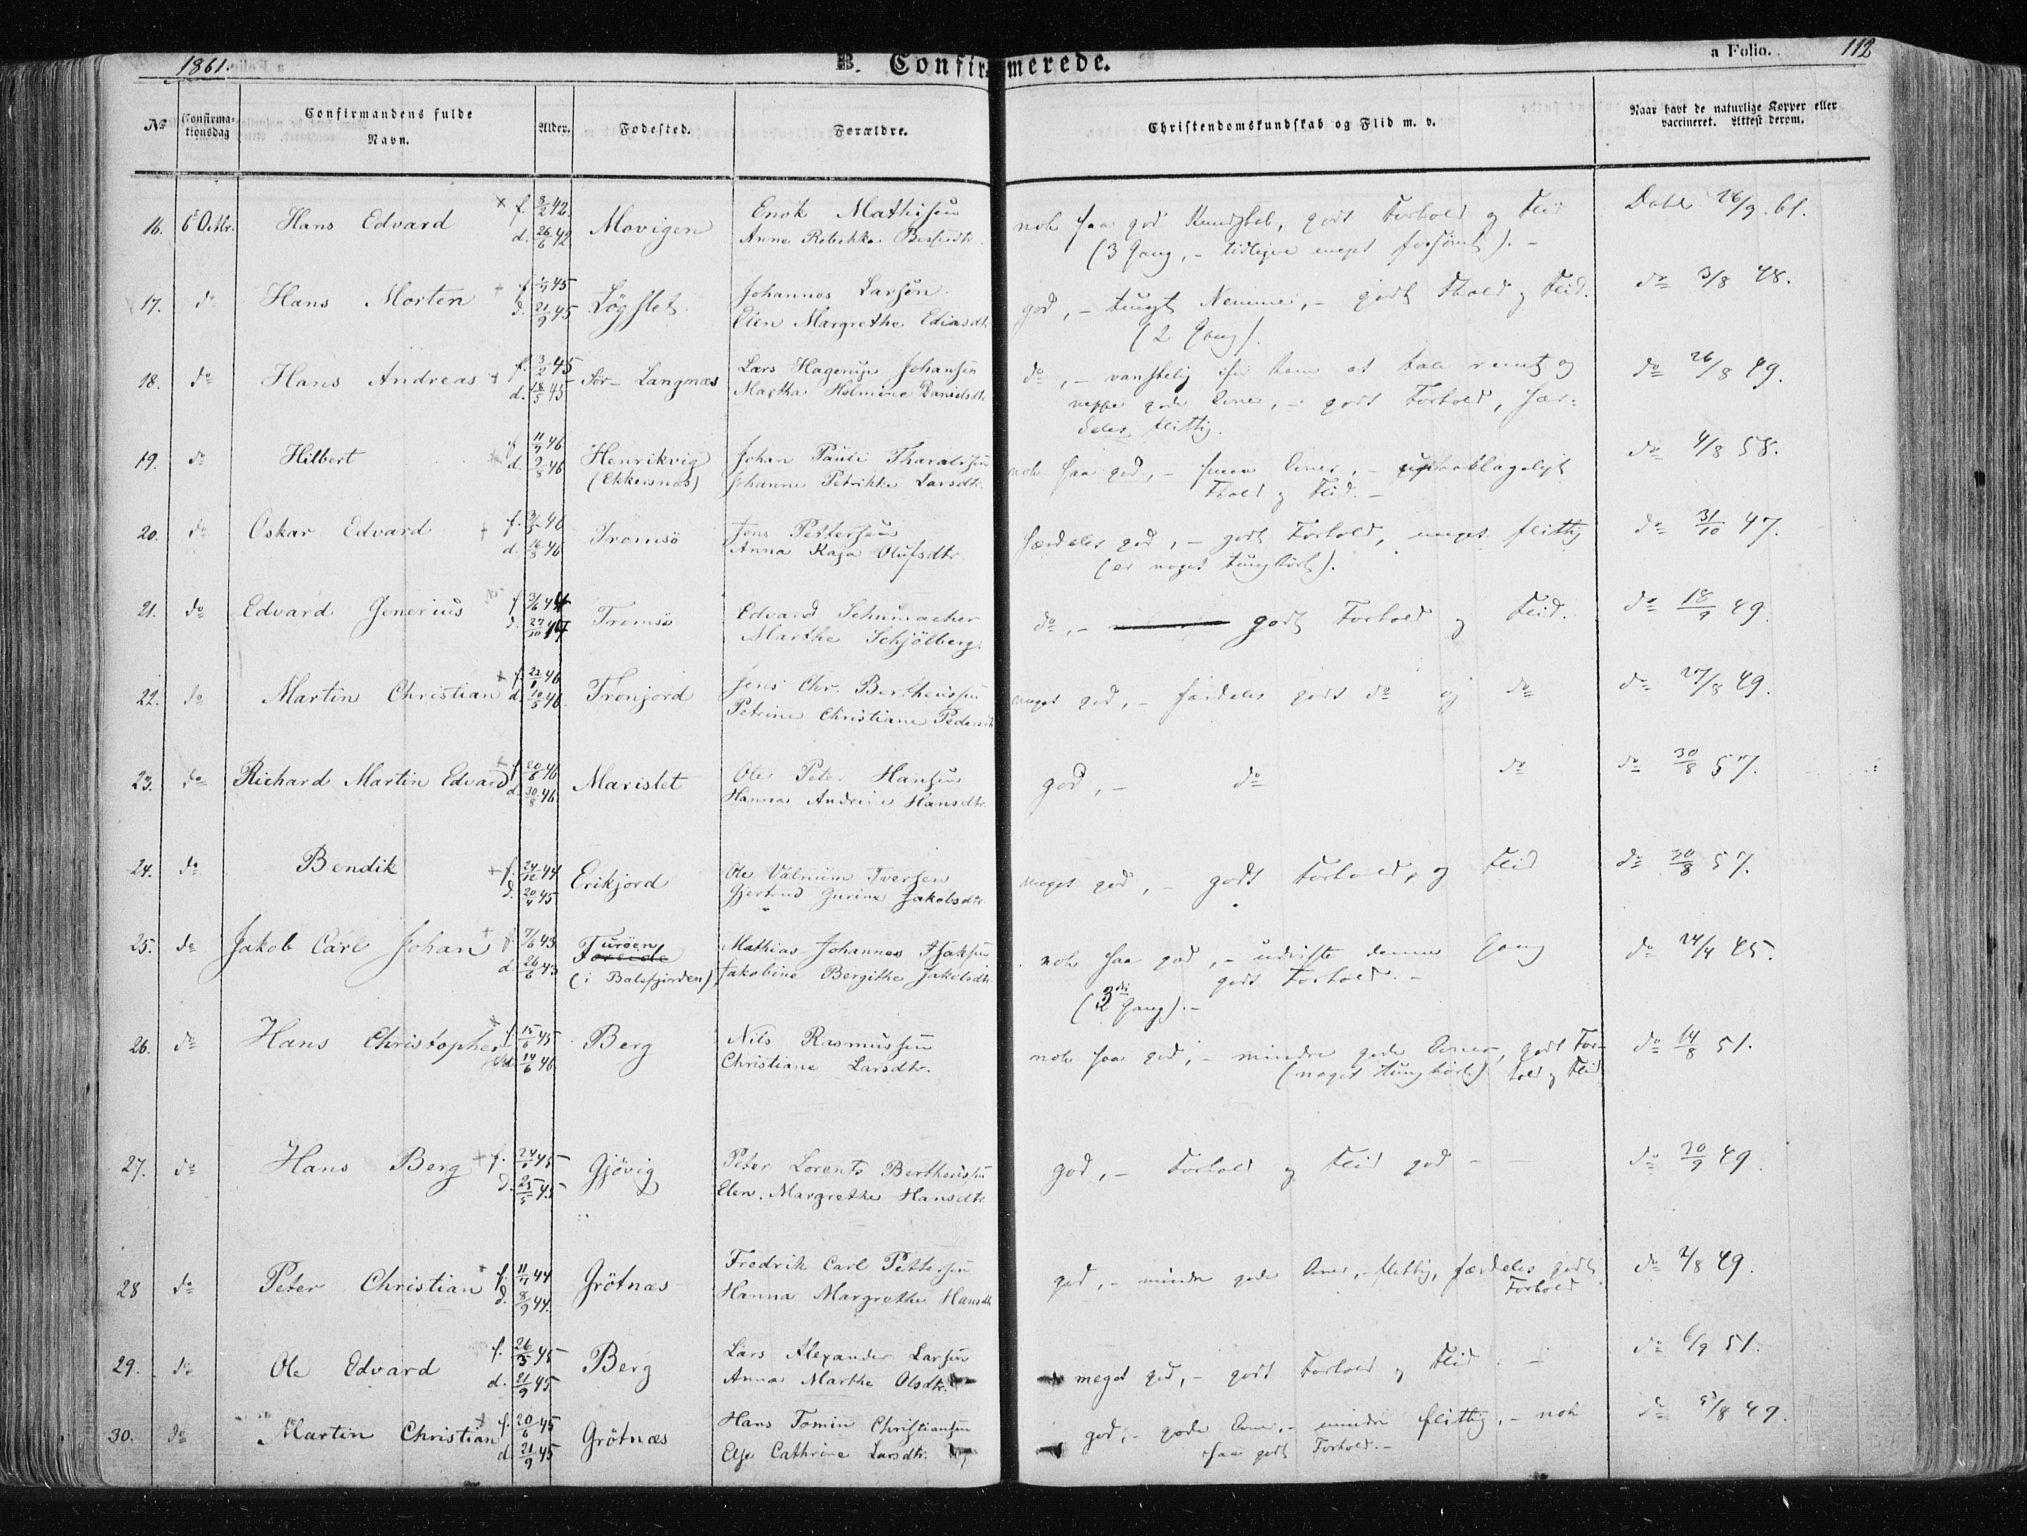 1861.
B. Confirmerede.
a Folio. 112
No Confirmationsdag Confirmandens fulde Navn. Alder. Fødested. Forældre. Christendomskundskab og Flid m. v. Naar havt de naturlige Kopper eller vaccineret. Attest derom.
16. 6 Octbr. Hans Edvard f. 3/2 42 Movigen Enok Mathisen nok saa god Kundskab, godt Forhold og Flid Dahl 26/9 61.
d. 26/6 42 Anne Rebekka (3 Gang, - tidligere meget forsömt). -
17. do Hans Morten f. 45 Løgslet Johannes Larsen god, - tungt Nemme, - godt Fhold og Flid. do 3/8 48.
d. 21/9 45 Elen Margrethe Eliasdtr (2 Gang).
18. do Hans Andreas f. 3/2 45 Sør-Langnæs Lars Hagerup Johansen do, - vanskelig at tale rent og do 26/8 49.
d. 18/5 45 Martha Holmine Danielsdtr neppe gode Evner, - godt Forhold, sær-
deles flittig.
19. do Hilbert f. 11/7 46 Henrikvig Johan Pauli Tharaldsen nok saa god, - smaa Evner, - upaaklageligt do 4/8 58.
d. 2/8 46 (Ekkersnæs) Johanna Petrikke Larsdtr. Fhold og Flid. -
20. do Oskar Edvard f. 46 Tromsö Jens Pettersen særdeles god, - godt Forhold, meget flittig do 31/10 47.
d. 46 Anna Kaja Olufsdtr. (er noget tunghört).
21. do Edvard Jenerius f. 44 Tromsö Edvard Schumacher do, - godt Forhold og Flid. do 18/9 49.
d. 27/10 Marthe Schjölberg.
22. do Martin Christian f. 22/1 46 Tronjord Jens Chr. Bertheussen meget god, - særdeles godt do og do do 27/8 49.
d. 10/5 46. Petrine Christiane Pedersdtr
23. do Richard Martin Edvard f. 20/6 46 Marislet Ole Peter Hansen god, - do do do 30/8 57.
d. 30/8 46. Hanna Andrine Hansdtr.
24. do Bendik f. 24/12 44 Erikjord Ole Iversen meget god, - godt Forhold, og Flid do 30/8 57.
d. 20/4 45 Gjertrud Gurine Jakobsdtr
25. do Jakob Carl Johan f. 7/6 43 Turöen Mathias Johannes Isaksen nok saa god, - udviste denne Gang do 24/4 45.
d. 26/6 43 (i Balsfjorden) Jakobine Bergithe Jakobsdtr godt Forhold. -
(3die Gang). -
26. do Hans Christopher f. 15/6 45 Berg Nils Rasmussen nok saa god, - mindre gode Evner, godt For- do 14/8 51.
d. 14/6 46. Christiane Larsdtr. (noget tunghört) hold og Flid
27. do Hans Berg f. 24/1 45 Gjövig Peter Lorents Bertheussen god, - Forhold og Flid god - do 20/9 49.
d. 25/5 45 Elen Margrethe Hansdtr
28 do Peter Christian f. 11/7 44 Grötnæs Fredrik Carl Pettersen god, - mindre gode Evner, - flittig, særdeles godt do 2/8 49.
d. 8/9 44. Hanna Margrethe Hansdtr Forhold
29. do Ole Edvard f. 26/3 45 Berg Lars Alexander Larsen meget god, - godt Forhold og Flid. - do 6/9 51.
d. 21/9 45 Anna Marthe Olsdtr.
30. do Martin Christian f. 20/6 45 Grötnæs Hans Tomin Christiansen god, - gode Evner, - mindre flittig, - nok do 5/8 49.
d. 21/9 45 Else Cathrine Larsdtr. saa godt Forhold. -